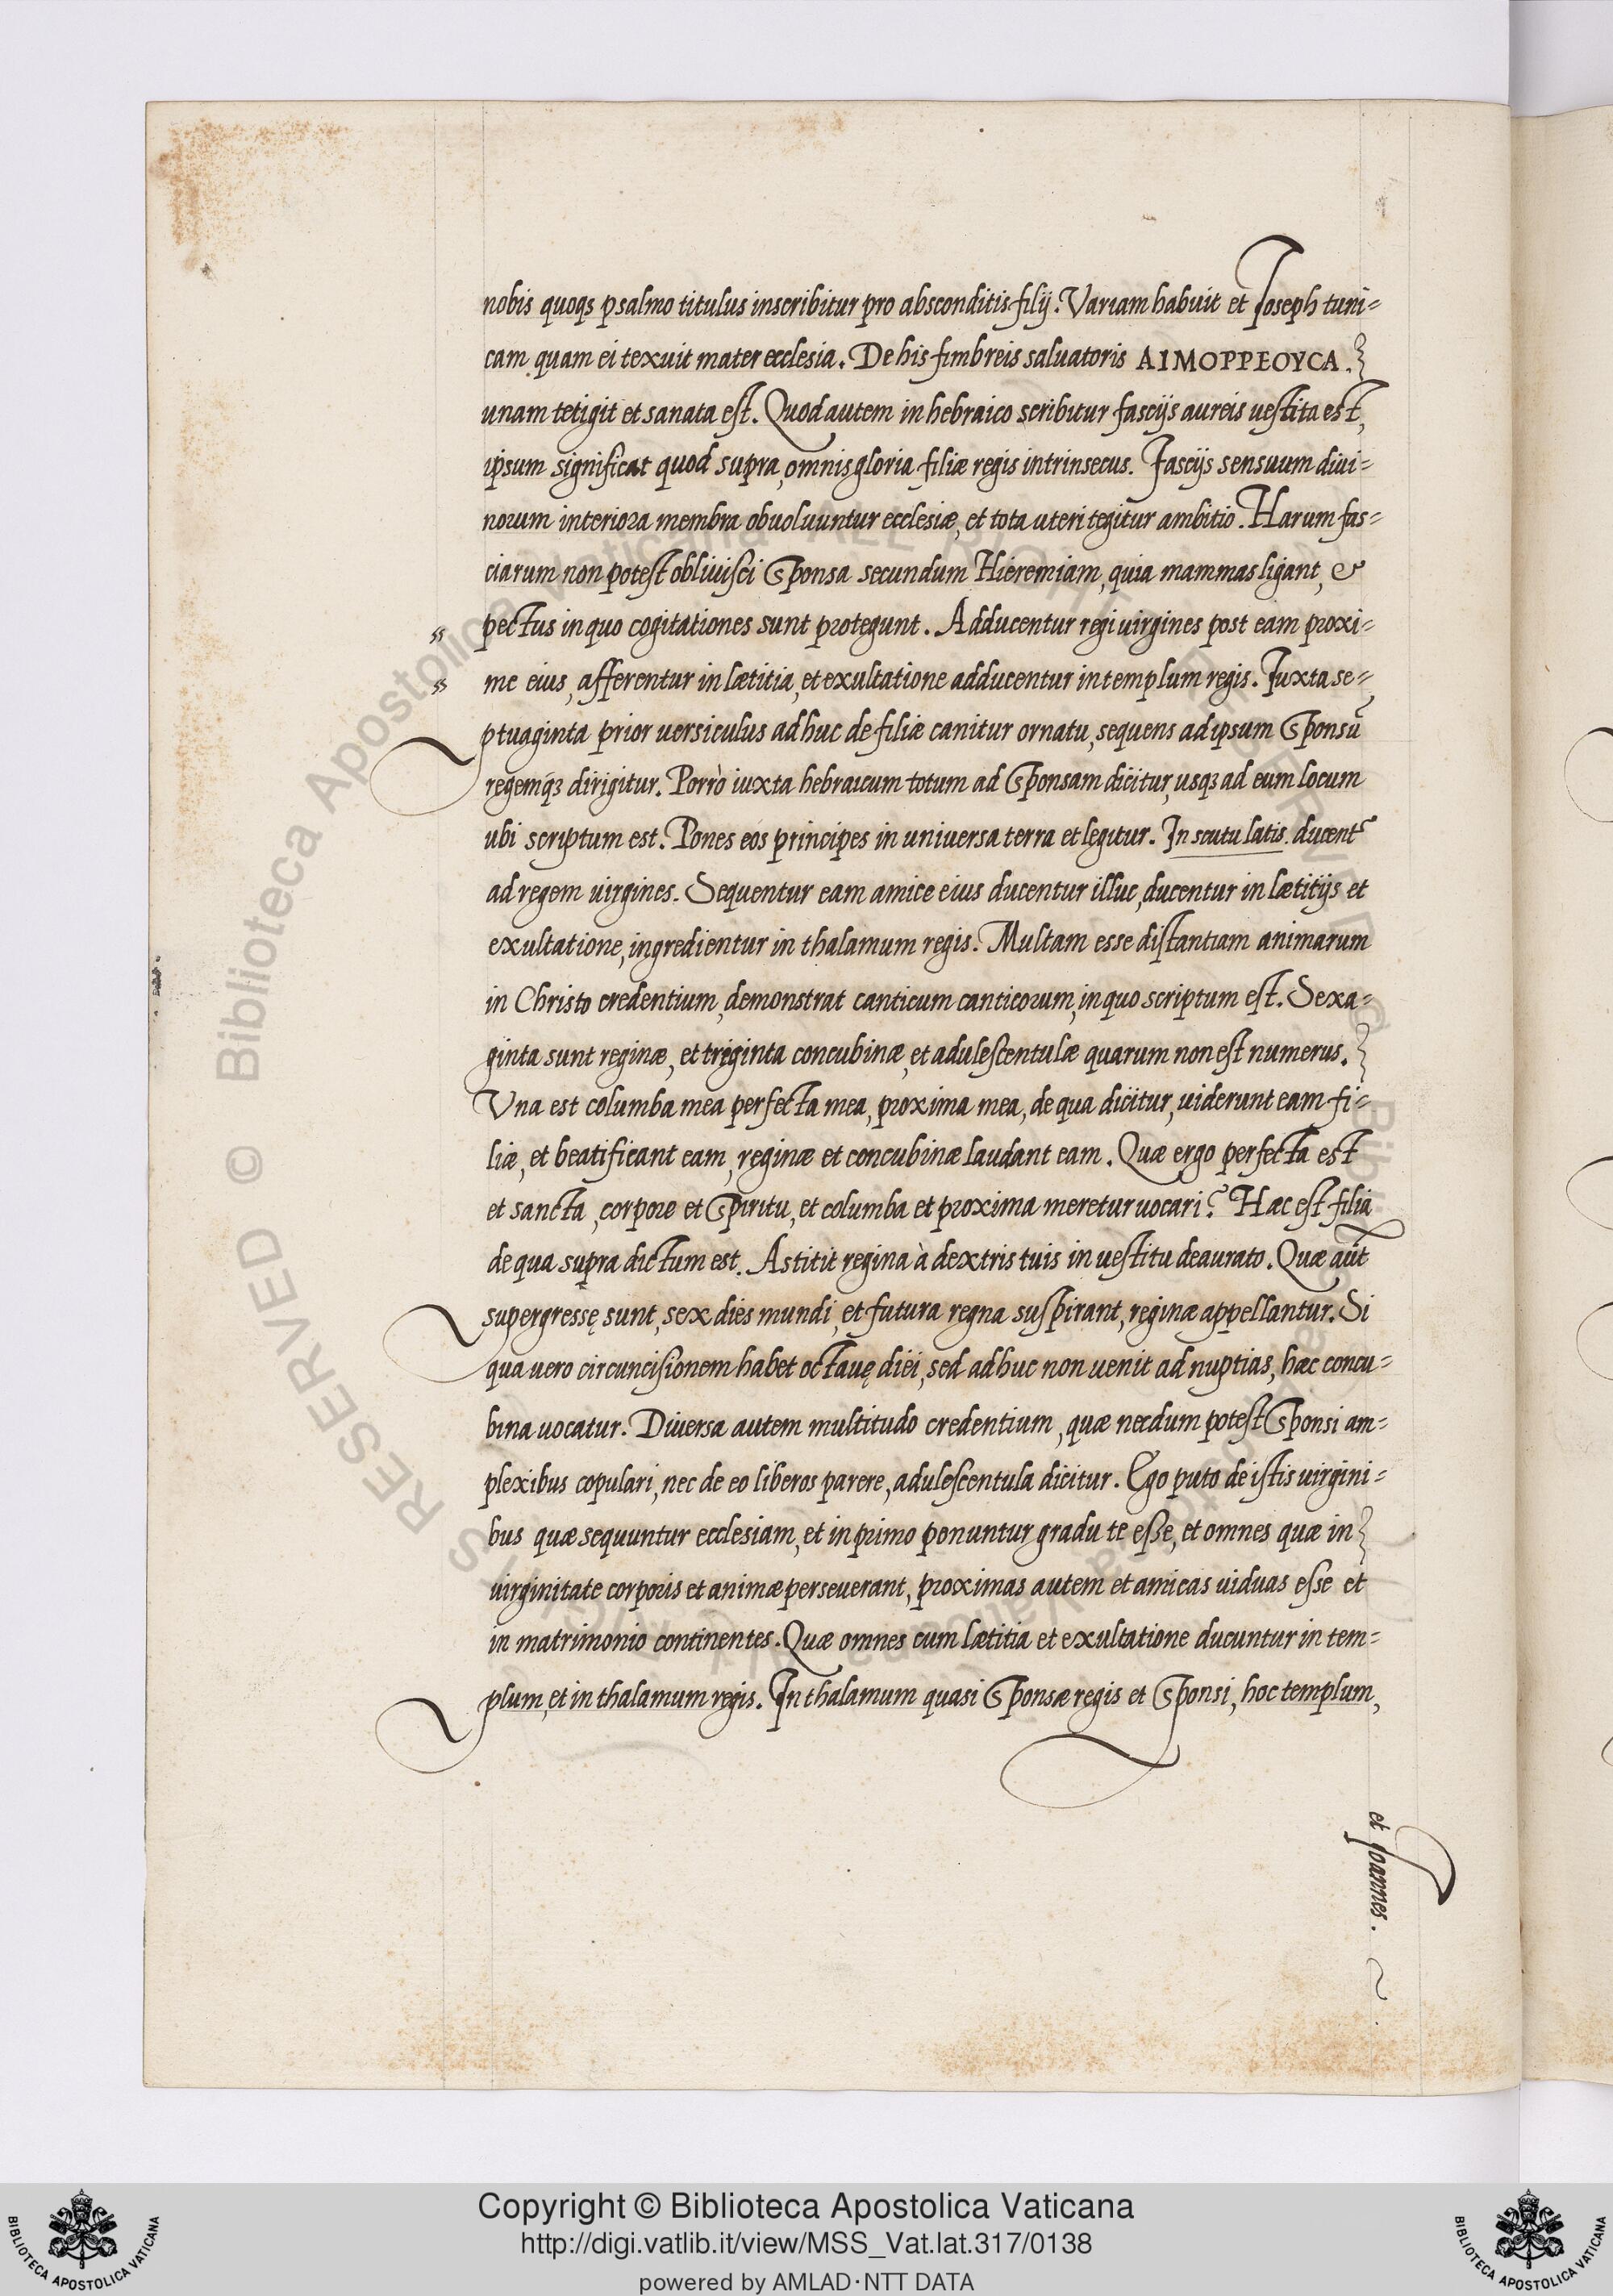 nobis quoqꝫ psalmo titulus inscribitur pro absconditis filij. Variam habuit et Joseph tuni=
cam quam ei texuit mater ecclesia. De his fimbreis saluatoris ΑΙΜΟΡΡΕΟΥCΑ.
unam tetigit et sanata est. Quod autem in hebraico scribitur fascijs aureis uestita est,
ipsum significat quod supra, omnis gloria filiæ regis intrinsecus. Fascijs sensuum diui=
norum interiora membra obuoluuntur ecclesiæ, et tota uteri tegitur ambitio. Harum fas=
ciarum non potest obliuisci Sponsa secundum Hieremiam, quia mammas ligant, &
pectus in quo cogitationes sunt protegunt. Adducentur regi uirgines post eam proxi=
me eius, afferentur in lætitia, et exultatione adducentur in templum regis. Juxta se=
ptuaginta prior uersiculus adhuc de filiæ canitur ornatu, sequens ad ipsum Sponsū
regemqꝫ dirigitur. Porrò iuxta hebraicum totum ad Sponsam dicitur, usqꝫ ad eum locum
ubi scriptum est. Pones eos principes in universa terra et legitur. In scutulatis ducentᷣ
ad regem uirgines. Sequentur eam amice eius ducentur illuc, ducentur in lætitijs et
exultatione, ingredientur in thalamum regis. Multam esse distantiam animarum
in Christo credentium, demonstrat canticum canticorum, in quo scriptum est. Sexa=
ginta sunt reginæ, et triginta concubinæ, et adulescentulæ quarum non est numerus.
Vna est columba mea perfecta mea, proxima mea, de qua dicitur, uiderunt eam fi=
liæ, et beatificant eam, reginæ et concubinæ laudant eam. Quæ ergo perfecta est
et sancta, corpore et Spiritu, et columba et proxima meretur uocari? Hæc est filia
de qua supra dictum est. Astitit regina à dextris tuis in uestitu deaurato. Quæ aūt
supergressę sunt, sex dies mundi, et futura regna suspirant, reginæ appellantur. Si
qua uero circuncisionem habet octauę diei, sed adhuc non uenit ad nuptias, hæc concu=
bina uocatur. Diuersa autem multitudo credentium, quæ necdum potest Sponsi am=
plexibus copulari, nec de eo liberos parere, adulescentula dicitur. Ego puto de istis uirgini=
bus quæ sequuntur ecclesiam, et in primo ponuntur gradu te esse, et omnes quæ in
uirginitate corporis et animæ perseuerant, proximas autem et amicas uiduas esse et
in matrimonio continentes. Quæ omnes cum lætitia et exultatione ducuntur in tem=
plum, et in thalamum regis. In thalamum quasi Sponsæ regis et Sponsi, hoc templum,
et Joannes.
RESERVED © Biblioteca Apostolica Vaticana ALL RIGHTS RESERVED © Biblioteca Apostolica Vaticana ALL RIGHTS
Copyright © Biblioteca Apostolica Vaticana
http://digi.vatlib.it/view/MSS_Vat.lat.317/0138
powered by AMLAD·NTT DATA
BIBLIOTECA APOSTOLICA VATICANA
BIBLIOTECA APOSTOLICA VATICANA